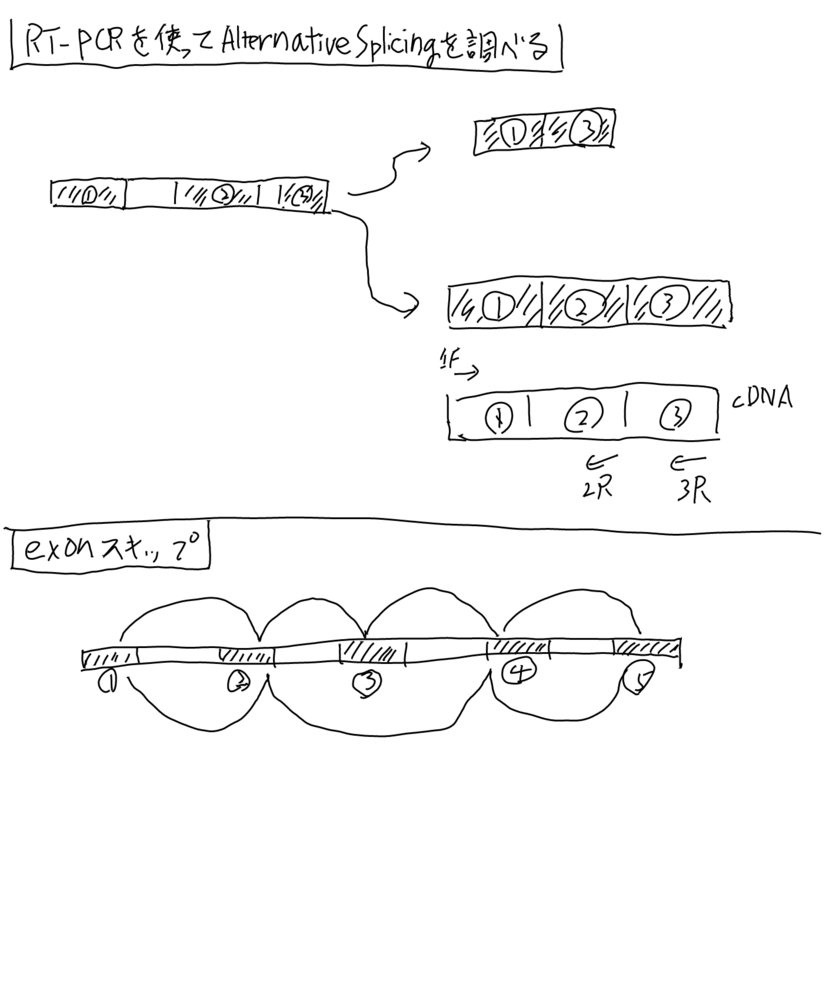 RT-PCRを使ってAlternative Splicingを調べる
① ③
① ② ③
① ② ③
1F
① ② ③ cDNA
2R 3R
exonスキップ
① ② ③ ④ ⑤